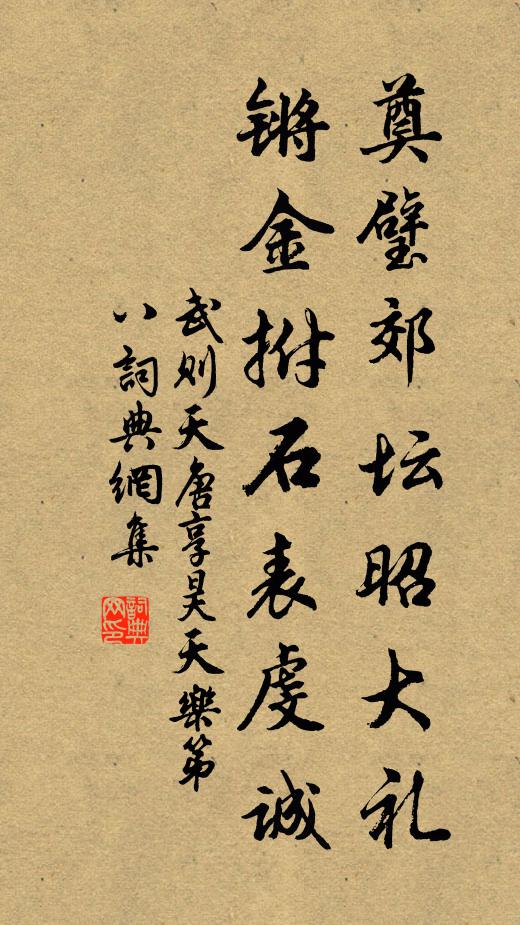 奠璧郊坛昭大礼
锵金拊石表虔诚
武则天唐享昊天樂第
八詞典網集
詞典
网印